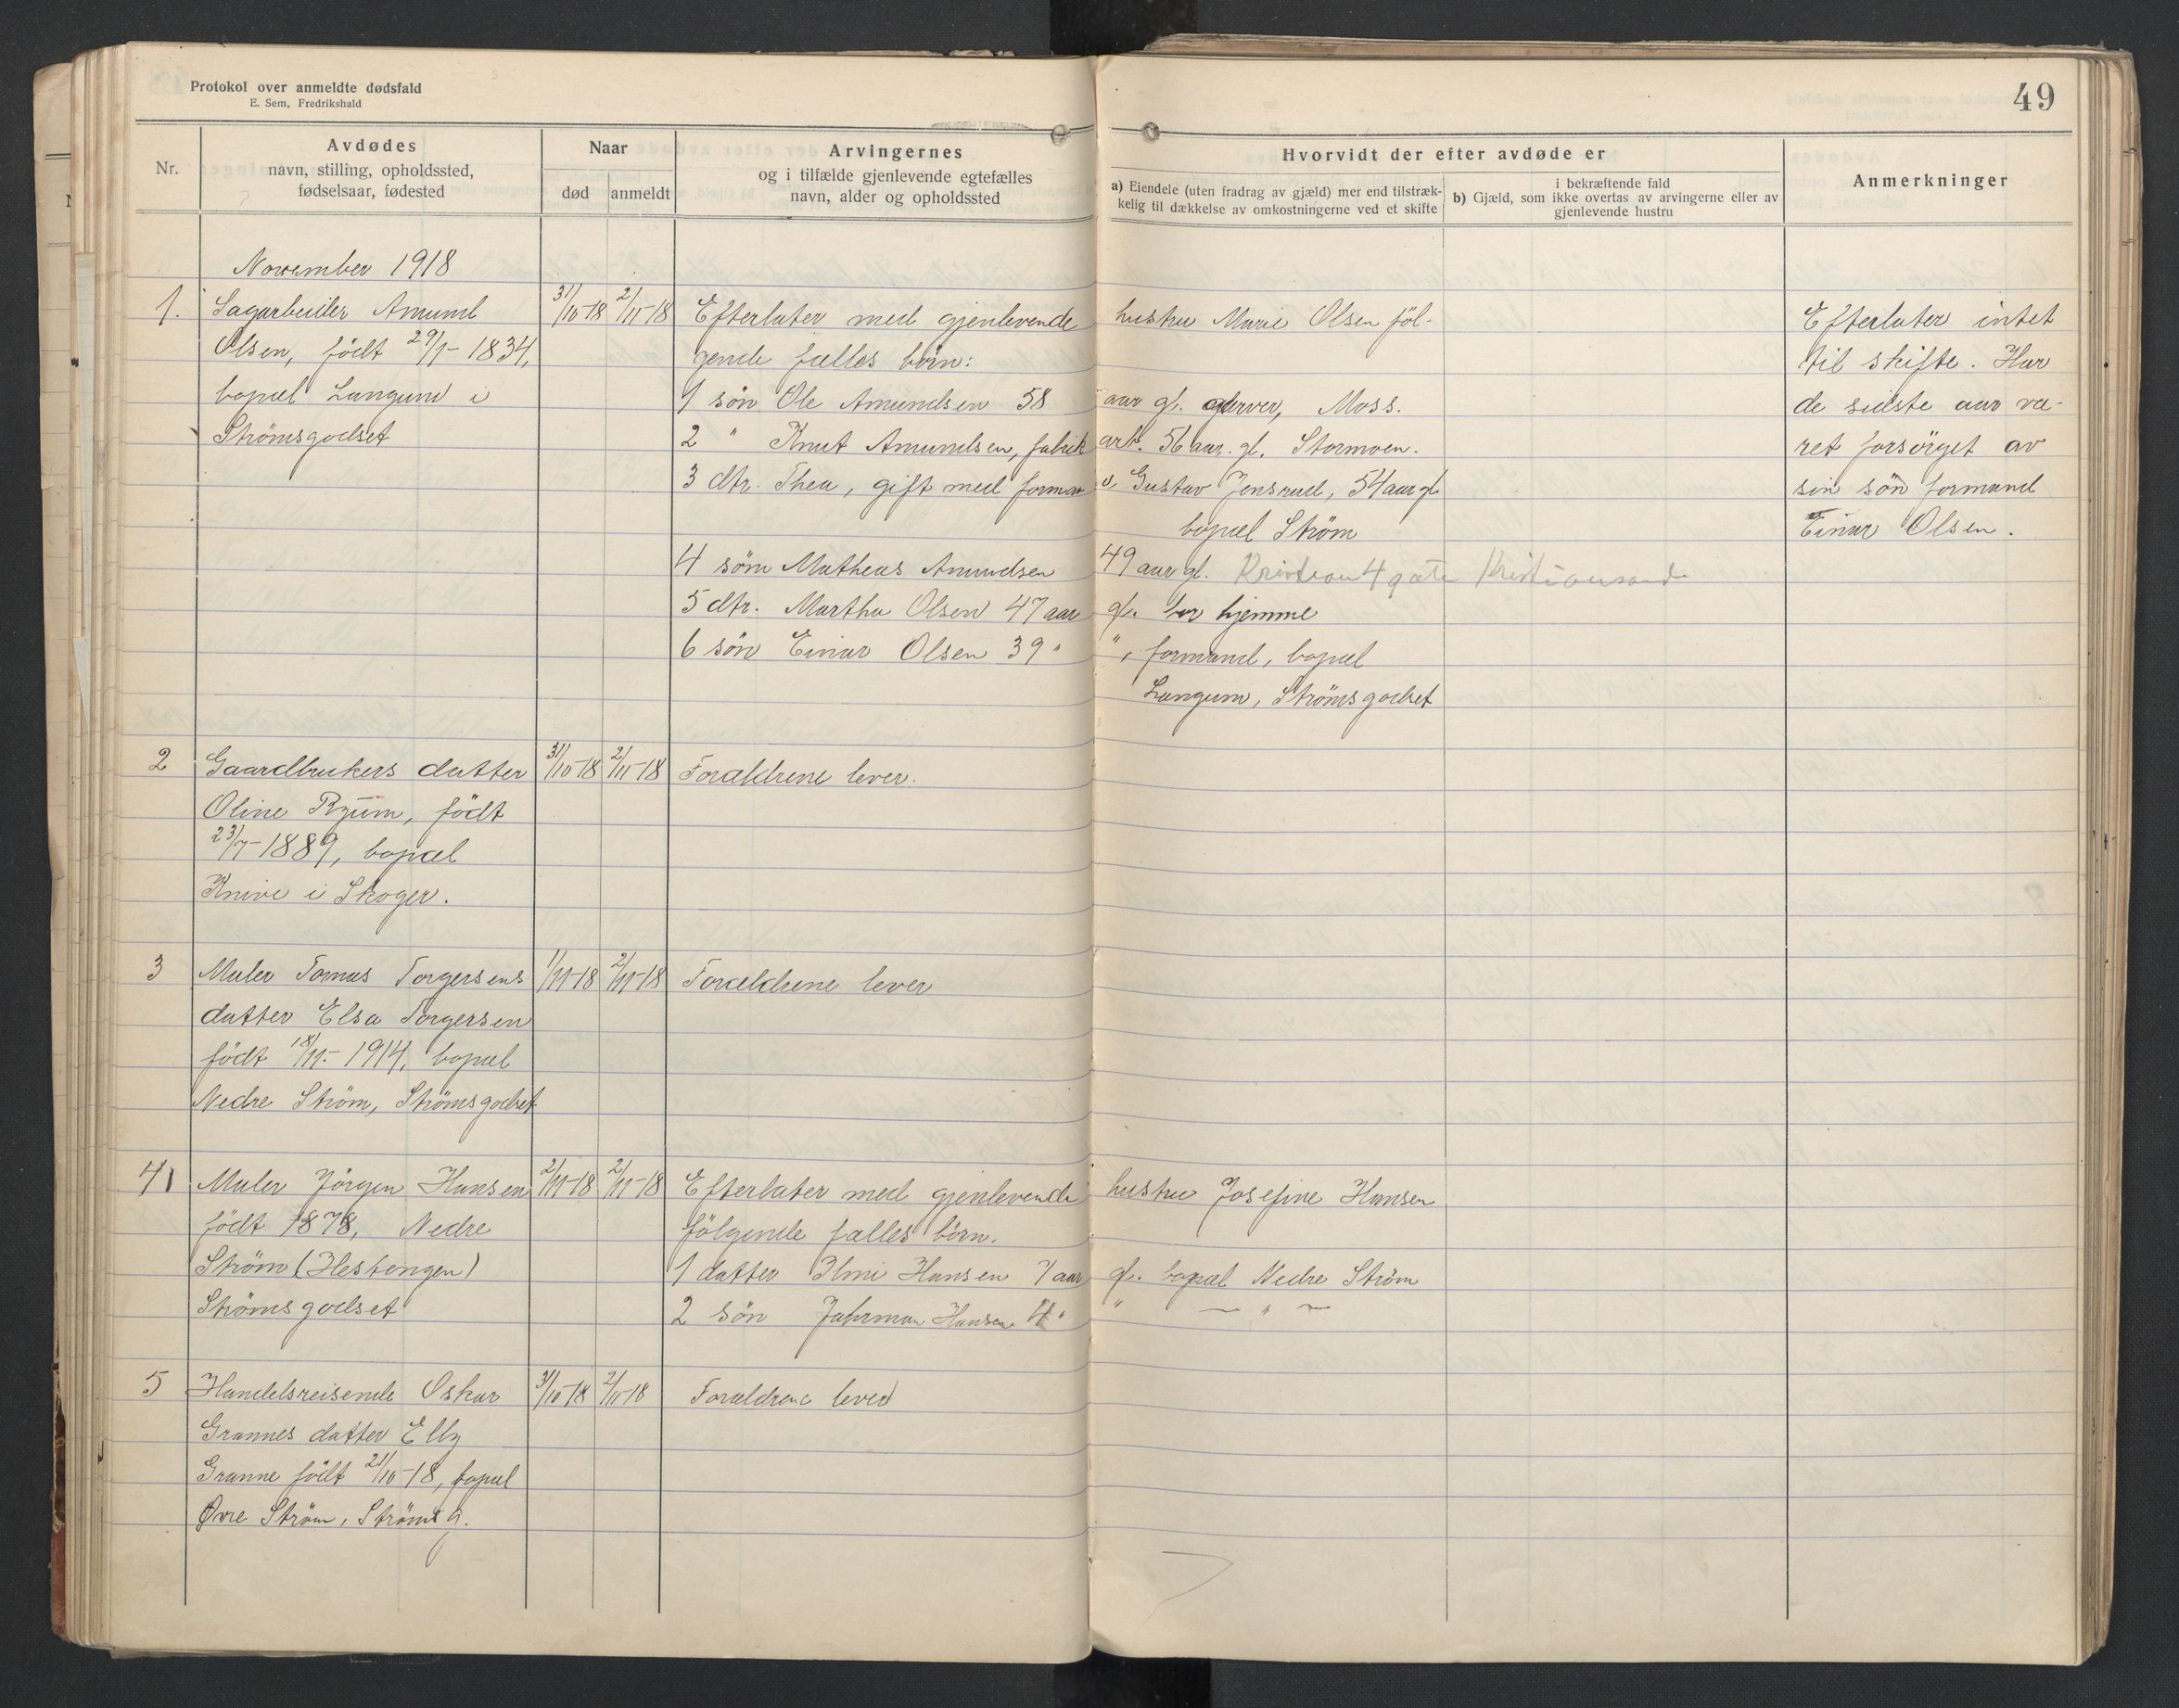 Protokol over anmeldte dødsfald
E. Sem, Fredrikshald
49
Nr.
Avdødes
navn, stilling, opholdssted,
fødselsaar, fødested
Naar
død
anmeldt
Arvingernes
og i tilfælde gjenlevende egtefælles
navn, alder og opholdssted
Hvorvidt der efter avdøde er
a) Eiendele (uten fradrag av gjæld) mer end tilstræk-
kelig til dækkelse av omkostningerne ved et skifte
i bekræftende fald
b) Gjæld, som ikke overtas av arvingerne eller av
gjenlevende hustru
Anmerkninger
November 1918
1. Sagarbeider Amund
Olsen, født 29/1-1834,
bopæl Langum i
Strømsgodset
31/10-18 2/11-18
Efterlater med gjenlevende hustru Marie Olsen føl-
gende fælles børn:
1 søn Ole Amundsen 58 aar gl. garver, Moss.
2 " Knut Amundsen, fabrik arb. 56 aar. gl. Stormoen.
3 dtr. Thea, gift med forman v. Gustav Jensrud, 54 aar gl.
bopæl Strøm
4 søn Matheus Amundsen 49 aar gl. Kristian 4 gate Kristiansand
5 dtr. Martha Olsen 47 aar gl. bor hjemme
6 søn Einar Olsen 39 " ", formand, bopæl
Langum, Strømsgodset
Efterlater intet
til skifte. Har
de sidste aar væ-
ret forsørget av
sin søn formand
Einar Olsen.
2 Gaardbrukers datter
Oline Ryum, født
23/7-1889, bopæl
Knive i Skoger.
31/10-18 2/11-18
Forældrene lever.
3 Maler Tomas Torgersens
datter Elsa Torgersen
født 18/11.-1914, bopæl
Nedre Strøm, Strømsgodset
1/11-18 2/11-18
Forældrene lever
4 Maler Jörgen Hansen
født 1878, Nedre
Strøm (Hestengen)
Strømsgodset
2/11-18 2/11-18
Efterlater med gjenlevende hustru Josefine Hansen
følgende fælles børn.
1 datter Ilmi Hansen 7 aar gl. bopæl Nedre Strøm
2 søn Jahrman Hansen 4 " " — " —
5 Handelsreisende Oskar
Grannes datter Elly
Granne født 21/10-18, bopæl
Øvre Strøm, Strømsg.
31/10-18 2/11-18
Forældrene lever